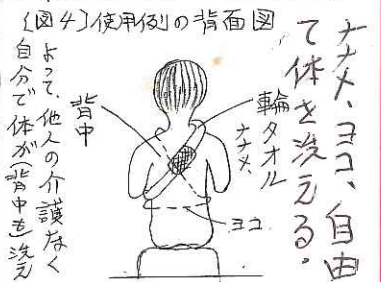 (図4)使用例の背面図
ナナメ、ヨコ、自由
て体を洗える。
輪タオル
ナナメ、
ヨコ
背中
よって、他人の介護なく
自分で体が(背中も)洗え